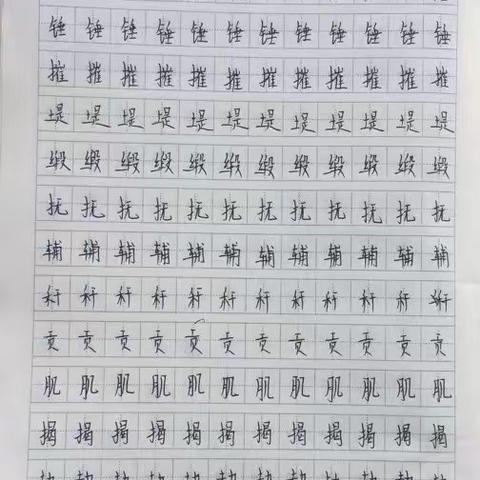 锤 锤 锤 锤 锤 锤 锤 锤 锤 锤 锤 锤
摧 摧 摧 摧 摧 摧 摧 摧 摧 摧 摧 摧
堤 堤 堤 堤 堤 堤 堤 堤 堤 堤 堤 堤
缎 缎 缎 缎 缎 缎 缎 缎 缎 缎 缎 缎
抚 抚 抚 抚 抚 抚 抚 抚 抚 抚 抚 抚
辅 辅 辅 辅 辅 辅 辅 辅 辅 辅 辅 辅
秆 秆 秆 秆 秆 秆 秆 秆 秆 秆 秆 秆
贡 贡 贡 贡 贡 贡 贡 贡 贡 贡 贡 贡
肌 肌 肌 肌 肌 肌 肌 肌 肌 肌 肌 肌
揭 揭 揭 揭 揭 揭 揭 揭 揭 揭 揭 揭